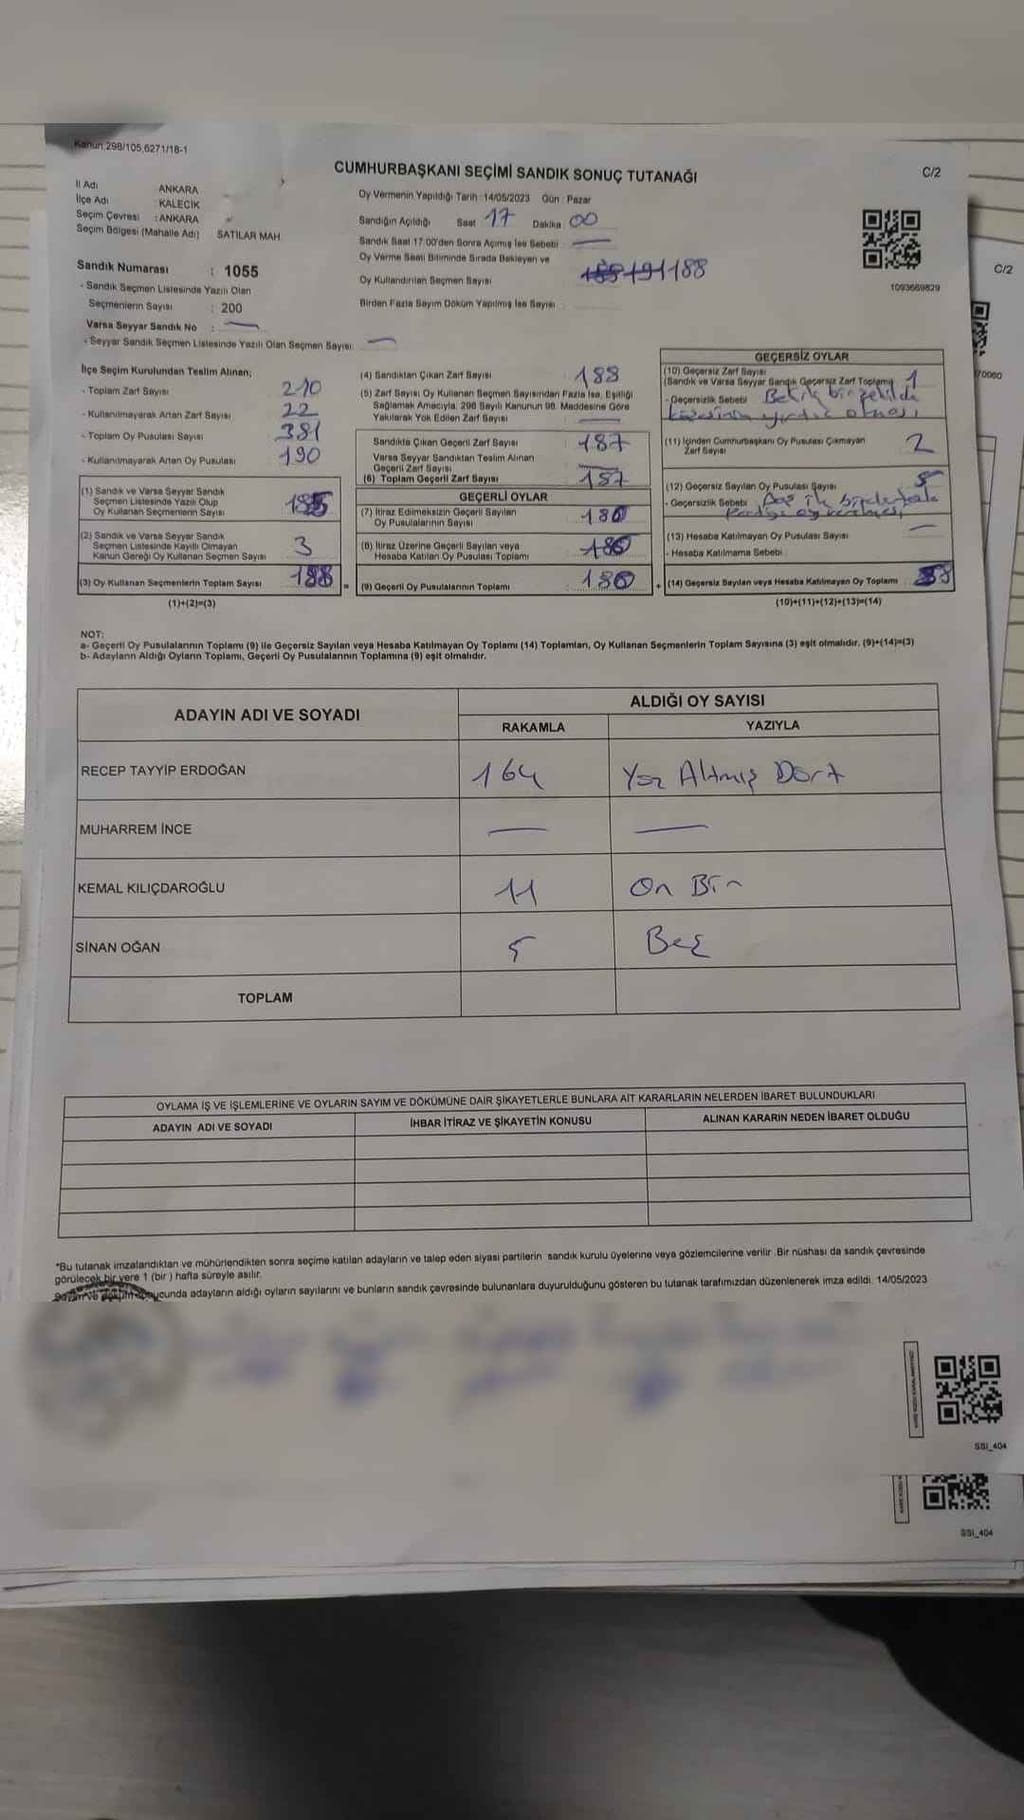 Kanun,298/105,6271/18-1
CUMHURBAŞKANI SEÇİMİ SANDIK SONUÇ TUTANAĞI
C/2
İl Adı ANKARA
İlçe Adı KALECİK
Seçim Çevresi : ANKARA
Seçim Bölgesi (Mahalle Adı) SATILAR MAH
Oy Vermenin Yapıldığı Tarih :14/05/2023 Gün : Pazar
Sandığın Açıldığı Saat 17 Dakika 00
Sandık Saat 17:00'den Sonra Açımış İse Sebebi
Oy Verme Saati Bitiminde Sırada Bekleyen ve
Oy Kullandırılan Seçmen Sayısı 188
Birden Fazla Sayım Döküm Yapılmış İse Sayısı
1093669829
Sandık Numarası : 1055
- Sandık Seçmen Listesinde Yazılı Olan
Seçmenlerin Sayısı : 200
Varsa Seyyar Sandık No :
- Seyyar Sandık Seçmen Listesinde Yazılı Olan Seçmen Sayısı:
İlçe Seçim Kurulundan Teslim Alınan;
- Toplam Zarf Sayısı 210
- Kullanılmayarak Artan Zarf Sayısı 22
- Toplam Oy Pusulası Sayısı 381
- Kullanılmayarak Artan Oy Pusulası 190
(1) Sandık ve Varsa Seyyar Sandık
Seçmen Listesinde Yazılı Olup
Oy Kullanan Seçmenlerin Sayısı 185
(2) Sandık ve Varsa Seyyar Sandık
Seçmen Listesinde Kayıtlı Olmayan
Kanun Gereği Oy Kullanan Seçmen Sayısı 3
(3) Oy Kullanan Seçmenlerin Toplam Sayısı 188
(1)+(2)=(3)
(4) Sandıktan Çıkan Zarf Sayısı 188
(5) Zarf Sayısı Oy Kullanan Seçmen Sayısından Fazla İse, Eşitliği
Sağlamak Amacıyla, 298 Sayılı Kanunun 98. Maddesine Göre
Yakılarak Yok Edilen Zarf Sayısı
Sandıkta Çıkan Geçerli Zarf Sayısı 187
Varsa Seyyar Sandıktan Teslim Alınan
Geçerli Zarf Sayısı
(6) Toplam Geçerli Zarf Sayısı 187
GEÇERLİ OYLAR
(7) İtiraz Edilmeksizin Geçerli Sayılan
Oy Pusulalarının Sayısı 180
(8) İtiraz Üzerine Geçerli Sayılan veya
Hesaba Katılan Oy Pusulası Toplamı
(9) Geçerli Oy Pusulalarının Toplamı 180
GEÇERSİZ OYLAR
(10) Geçersiz Zarf Sayısı
(Sandık ve Varsa Seyyar Sandık Geçersiz Zarf Toplamı) 1
- Geçersizlik Sebebi Belirli bir şekilde
olması
(11) İçinden Cumhurbaşkanı Oy Pusulası Çıkmayan
Zarf Sayısı 2
(12) Geçersiz Sayılan Oy Pusulası Sayısı 5
- Geçersizlik Sebebi
(13) Hesaba Katılmayan Oy Pusulası Sayısı
- Hesaba Katılmama Sebebi
(14) Geçersiz Sayılan veya Hesaba Katılmayan Oy Toplamı 8
(10)+(11)+(12)+(13)=(14)
NOT:
a- Geçerli Oy Pusulalarının Toplamı (9) ile Geçersiz Sayılan veya Hesaba Katılmayan Oy Toplamı (14) Toplamları, Oy Kullanan Seçmenlerin Toplam Sayısına (3) eşit olmalıdır. (9)+(14)=(3)
b- Adayların Aldığı Oyların Toplamı, Geçerli Oy Pusulalarının Toplamına (9) eşit olmalıdır.
ADAYIN ADI VE SOYADI
ALDIĞI OY SAYISI
RAKAMLA YAZIYLA
RECEP TAYYİP ERDOĞAN 164 Yüz Altmış Dört
MUHARREM İNCE
KEMAL KILIÇDAROĞLU 11 On Bir
SİNAN OĞAN 5 Beş
TOPLAM
OYLAMA İŞ VE İŞLEMLERİNE VE OYLARIN SAYIM VE DÖKÜMÜNE DAİR ŞİKAYETLERLE BUNLARA AİT KARARLARIN NELERDEN İBARET BULUNDUKLARI
ADAYIN ADI VE SOYADI İHBAR İTİRAZ VE ŞİKAYETİN KONUSU ALINAN KARARIN NEDEN İBARET OLDUĞU
*Bu tutanak imzalandıktan ve mühürlendikten sonra seçime katılan adayların ve talep eden siyasi partilerin sandık kurulu üyelerine veya gözlemcilerine verilir .Bir nüshası da sandık çevresinde
görülecek bir yere 1 (bir ) hafta süreyle asılır.
Sayım ve döküm sonucunda adayların aldığı oyların sayılarını ve bunların sandık çevresinde bulunanlara duyurulduğunu gösteren bu tutanak tarafımızdan düzenlenerek imza edildi. 14/05/2023
SSI_404
SSI_404
C/2